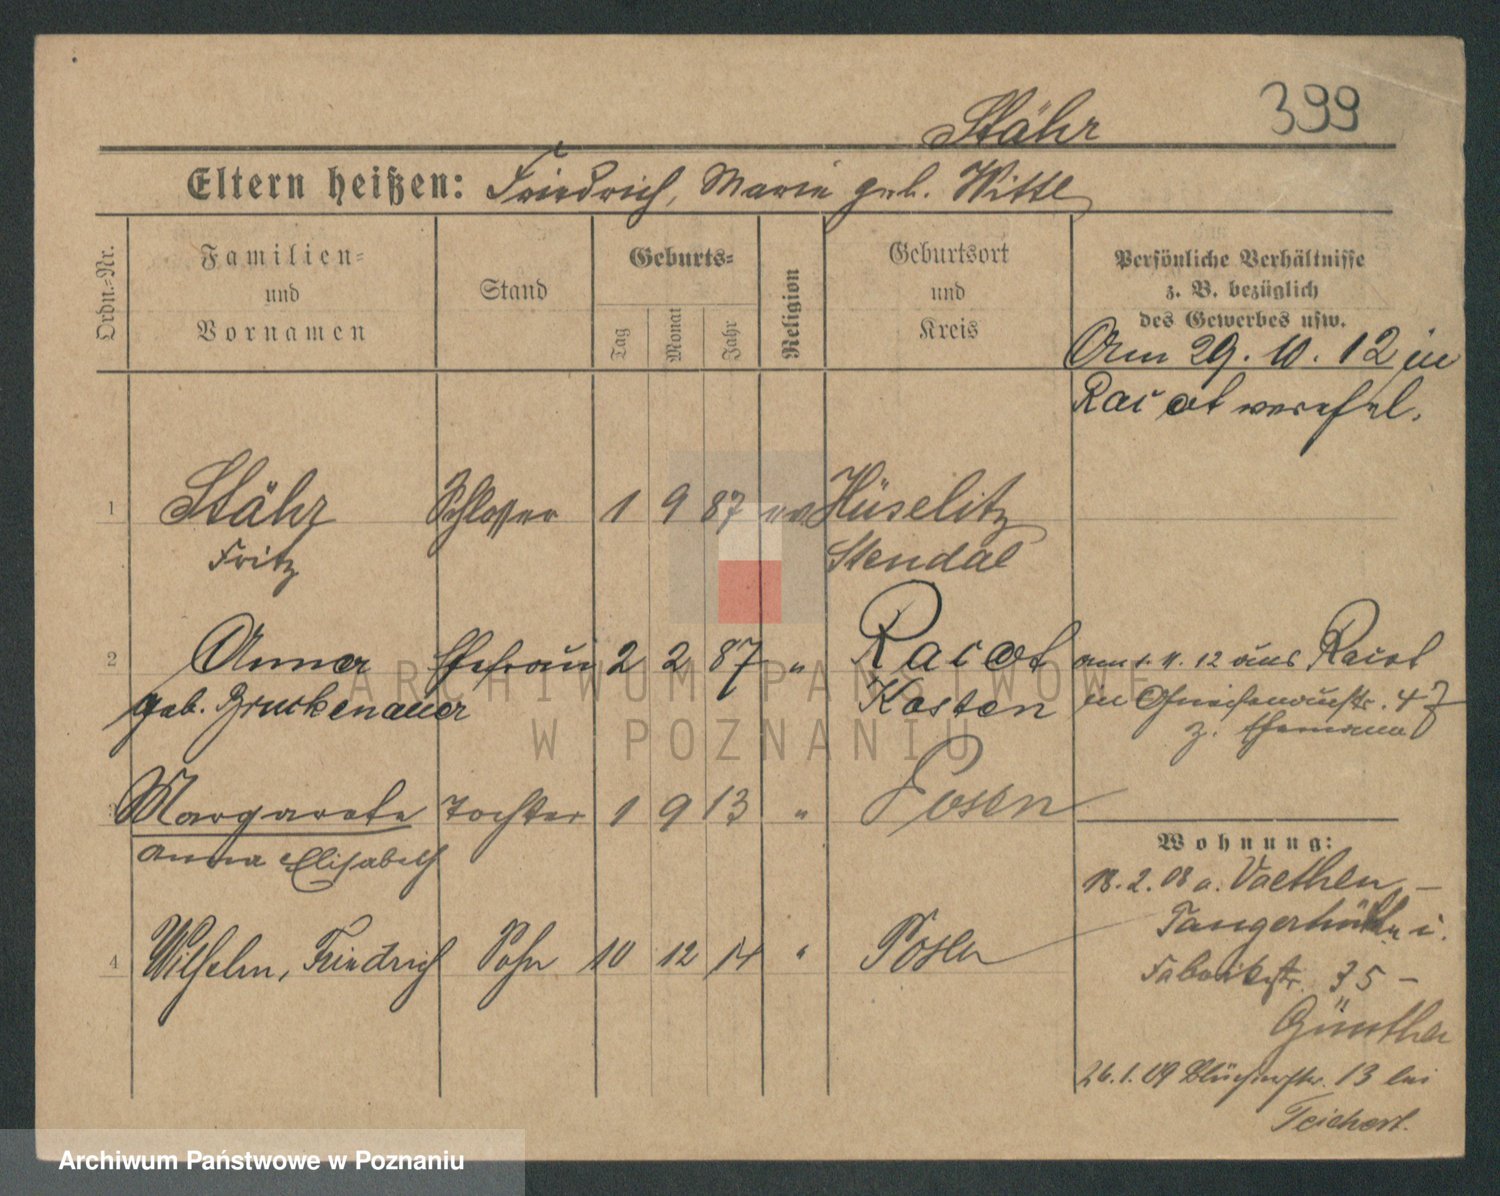 399
Stähr
Eltern heißen: Friedrich, Marie geb. Witte
Ordn.-Nr.
Familien-
und
Vornamen
Stand
Geburts-
Tag
Monat
Jahr
Religion
Geburtsort
und
Kreis
Persönliche Verhältnisse
z. B. bezüglich
des Gewerbes usw.
Am 29. 10. 12 in
Racot verehel.
1 Stähr Schlosser 1 9 87 ev Hüselitz
Fritz Stendal
2 Anna Ehefrau 2 2 87 " Racot am 1. 11. 12 aus Racot
geb. Bruckenauer Kosten in Gneisenaustr. 47
z. Ehemann
3 Margarete Tochter 1 9 13 " Posen
Anna Elisabeth
4 Wilhelm, Friedrich Sohn 10 12 14 " Posen
Wohnung:
18. 2. 08 a. Vaethen-
Tangerhütte i.
Fabrikstr. 35 -
Günther
26. 1. 09 Blücherstr. 13 bei
Teichert.
ARCHIWUM PAŃSTWOWE
W POZNANIU
Archiwum Państwowe w Poznaniu